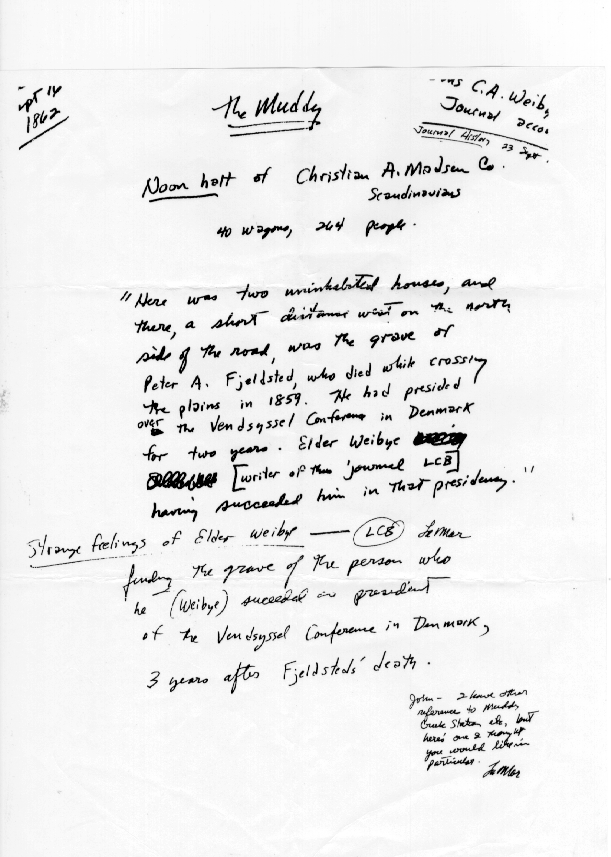 Sept 14
1862
The Muddy
C.A. Weiby
Journal acco
Journal History 23 Sept.
Noon halt of Christian A. Madsen Co.
Scandinavians
40 wagons, 264 people.
"Here was two uninhabited houses, and
there, a short distance west on the north
side of the road, was the grave of
Peter A. Fjeldsted, who died while crossing
the plains in 1859. He had presided
over the Vendsyssel Conference in Denmark
for two years. Elder Weibye
[writer of this journal LCB]
having succeeded him in that presidency."
Strange feelings of Elder Weibye — LCB LeMar
finding the grave of the person who
he (Weibye) succeeded as president
of the Vendsyssel Conference in Denmark,
3 years after Fjeldsteds' death.
John - I have other
reference to Muddy
Creek Station etc, but
here's one I thought
you would like in
particular.
LeMar